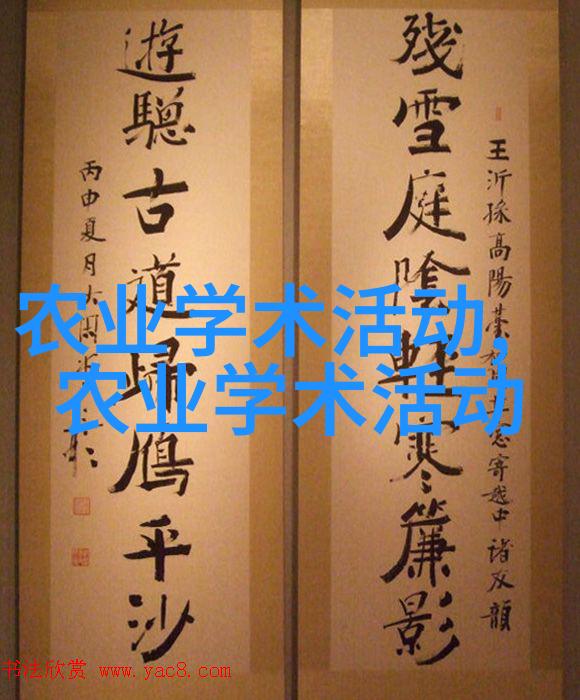 殘雪庭陰輕寒簾影
王沂孫高陽臺 寄越中諸友韻
遊驄古道歸鴈平沙
丙申夏月
农业学术活动,
农业学术活动
书法欣赏 www.yac8.com